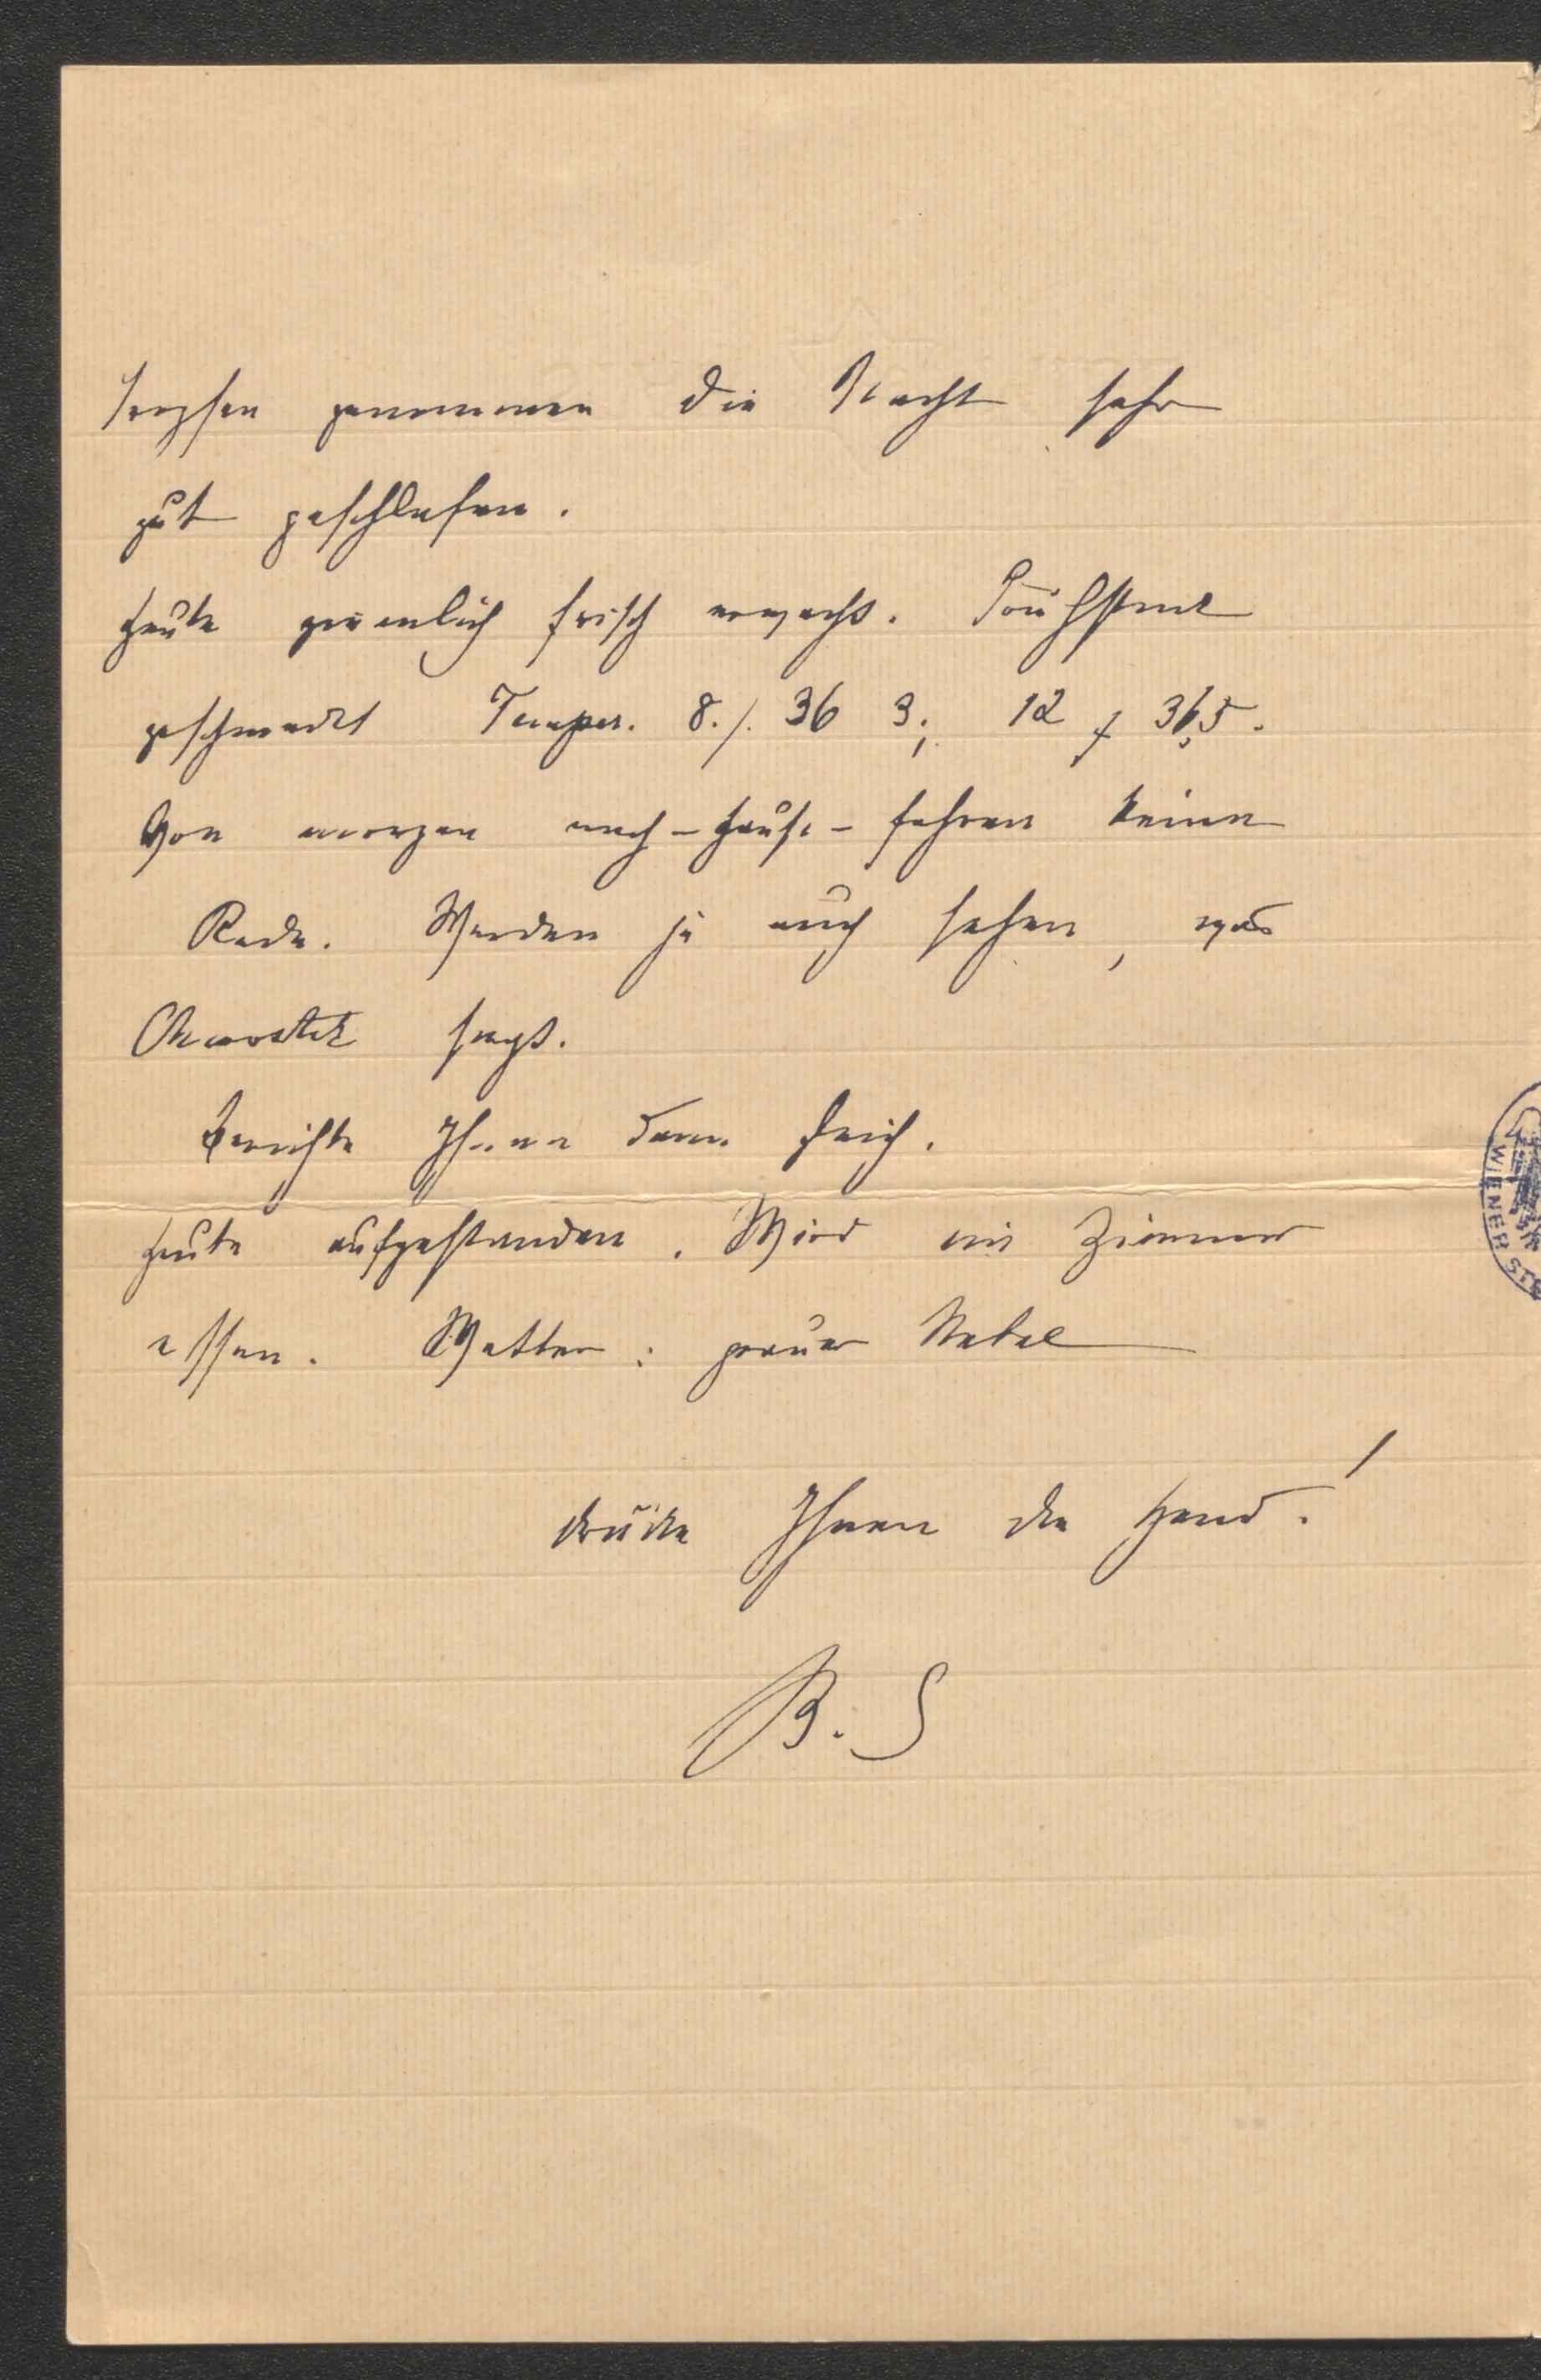 Tropfen genommen die Nacht sehr
gut geschlafen.
Heute ziemlich frisch erwacht. Frühstück
geschmeckt Temper. 8./. 36 3; 12 f 36,5.
Von morgen nach-Hause-fahren keine
Rede. Werden ja auch sehen, was
Chvostek sagt.
Berichte Ihnen dann gleich.
Heute aufgestanden. Wird im Zimmer
essen. Wetter: grauer Nebel
drücke Ihnen die Hand!
B. S
WIENER